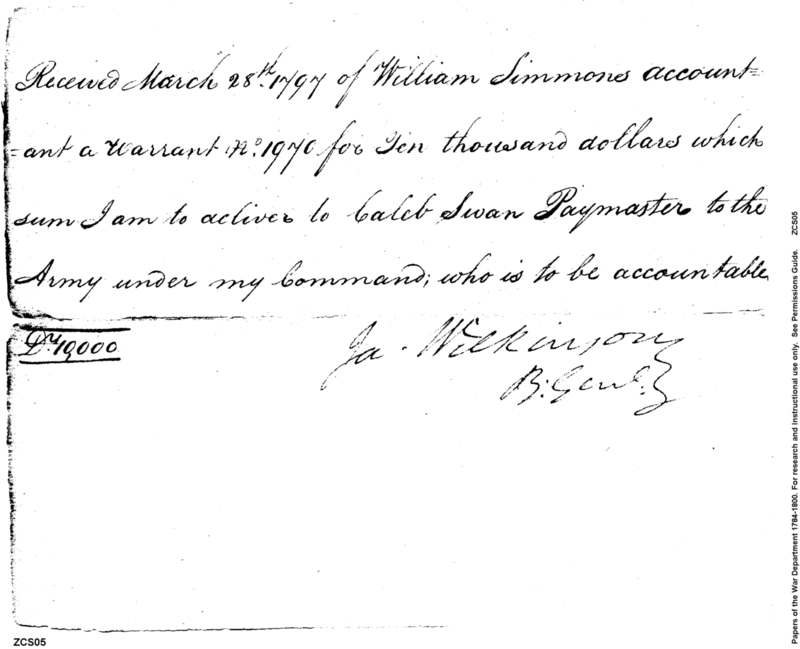 Received March 28th. 1797 of William Simmons account=
=ant a Warrant No. 1970 for Ten thousand dollars which
sum I am to deliver to Caleb Swan Paymaster to the
Army under my Command; who is to be accountable
Drs. 10,000
Ja. Wilkinson
B: Genl.
ZCS05
Papers of the War Department 1784-1800. For research and instructional use only. See Permissions Guide. ZCS05